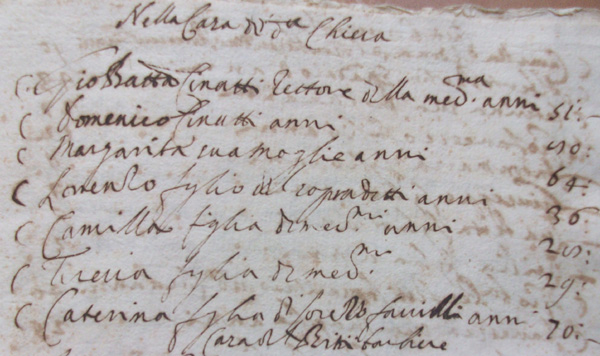 Nella Casa di da Chiesa
( Gio Batta Cinatti Rettore della med.ma anni 51:
( Domenico Cinatti anni 40:
( Margarita sua moglie anni 64:
( Lorenzo figlio de sopradetti anni 36
( Camilla figlia de med.mi anni
( Teresa figlia de med.mi 29:
( Caterina figlia di anni 70:
Casa